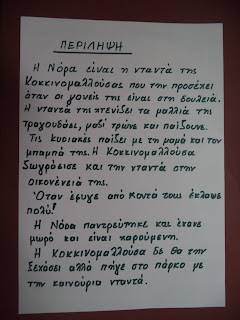 ΠΕΡΙΛΗΨΗ
Η Νόρα είναι η νταντά της
Κοκκινομαλλούσας που την προσέχει
όταν οι γονείς της είναι στη δουλειά.
Η νταντά της χτενίζει τα μαλλιά της
τραγουδάει, μαζί τρώνε και παίζουνε.
Τις κυριακές παίζει με τη μαμά και τον
μπαμπά της. Η Κοκκινομαλλούσα
ζωγράφισε και την νταντά στην
οικογένειά της.
Όταν έφυγε από κοντά τους έκλαψε
πολύ!
Η Νόρα παντρεύτηκε και έκανε
μωρό και είναι χαρούμενη.
Η Κοκκινομαλλούσα δε θα την
ξεχάσει αλλά πήγε στο πάρκο με
την καινούρια νταντά.